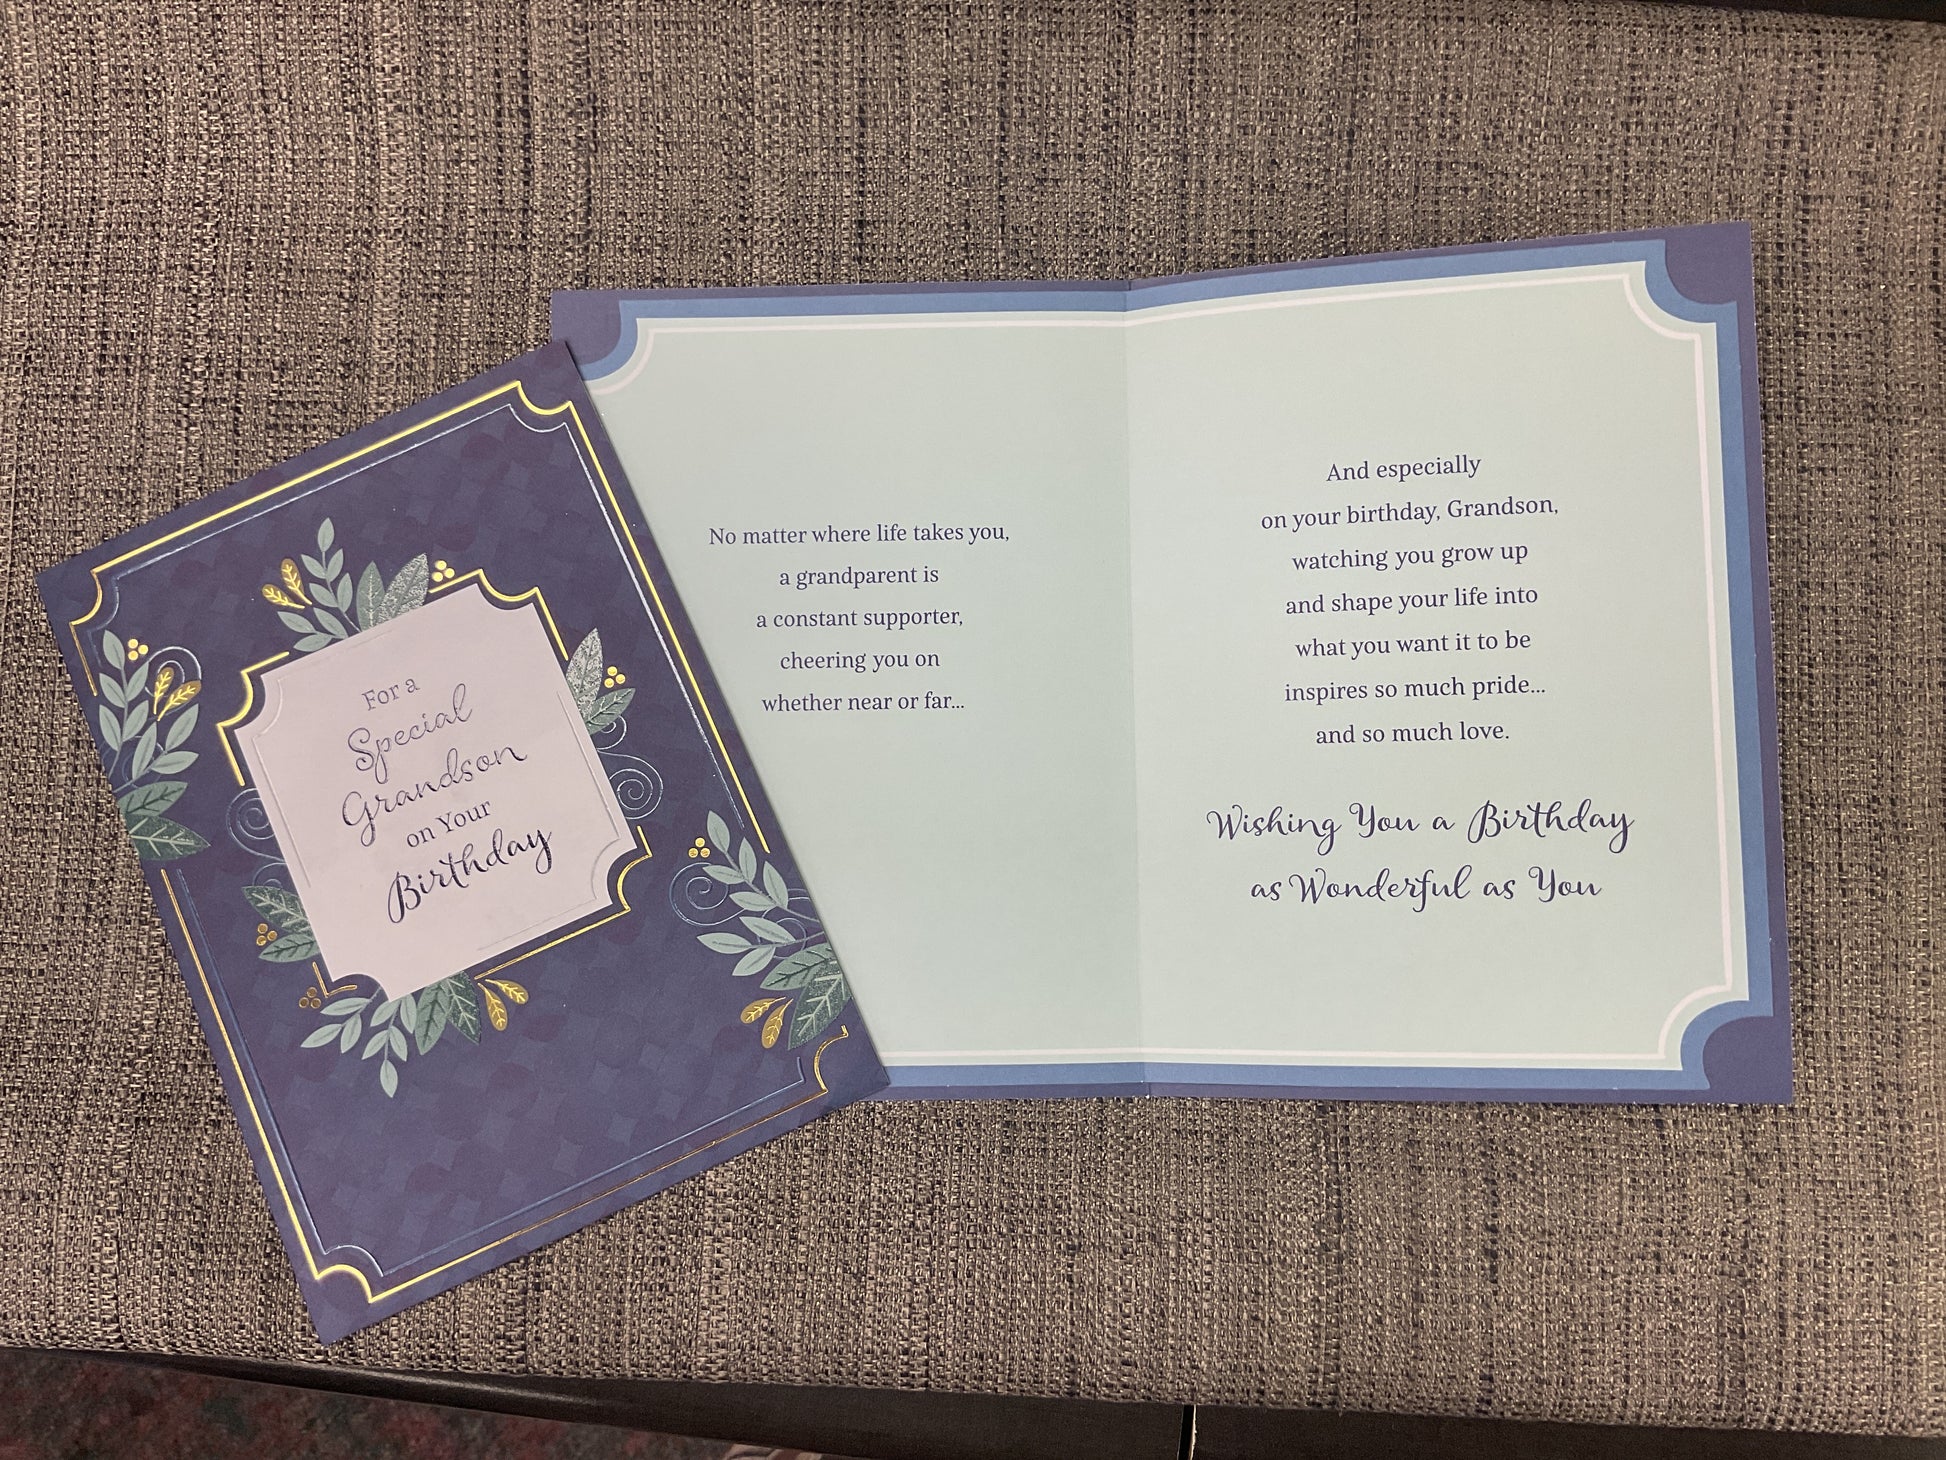 For a
Special
Grandson
on Your
Birthday
No matter where life takes you,
a grandparent is
a constant supporter,
cheering you on
whether near or far...
And especially
on your birthday, Grandson,
watching you grow up
and shape your life into
what you want it to be
inspires so much pride...
and so much love.
Wishing You a Birthday
as Wonderful as You